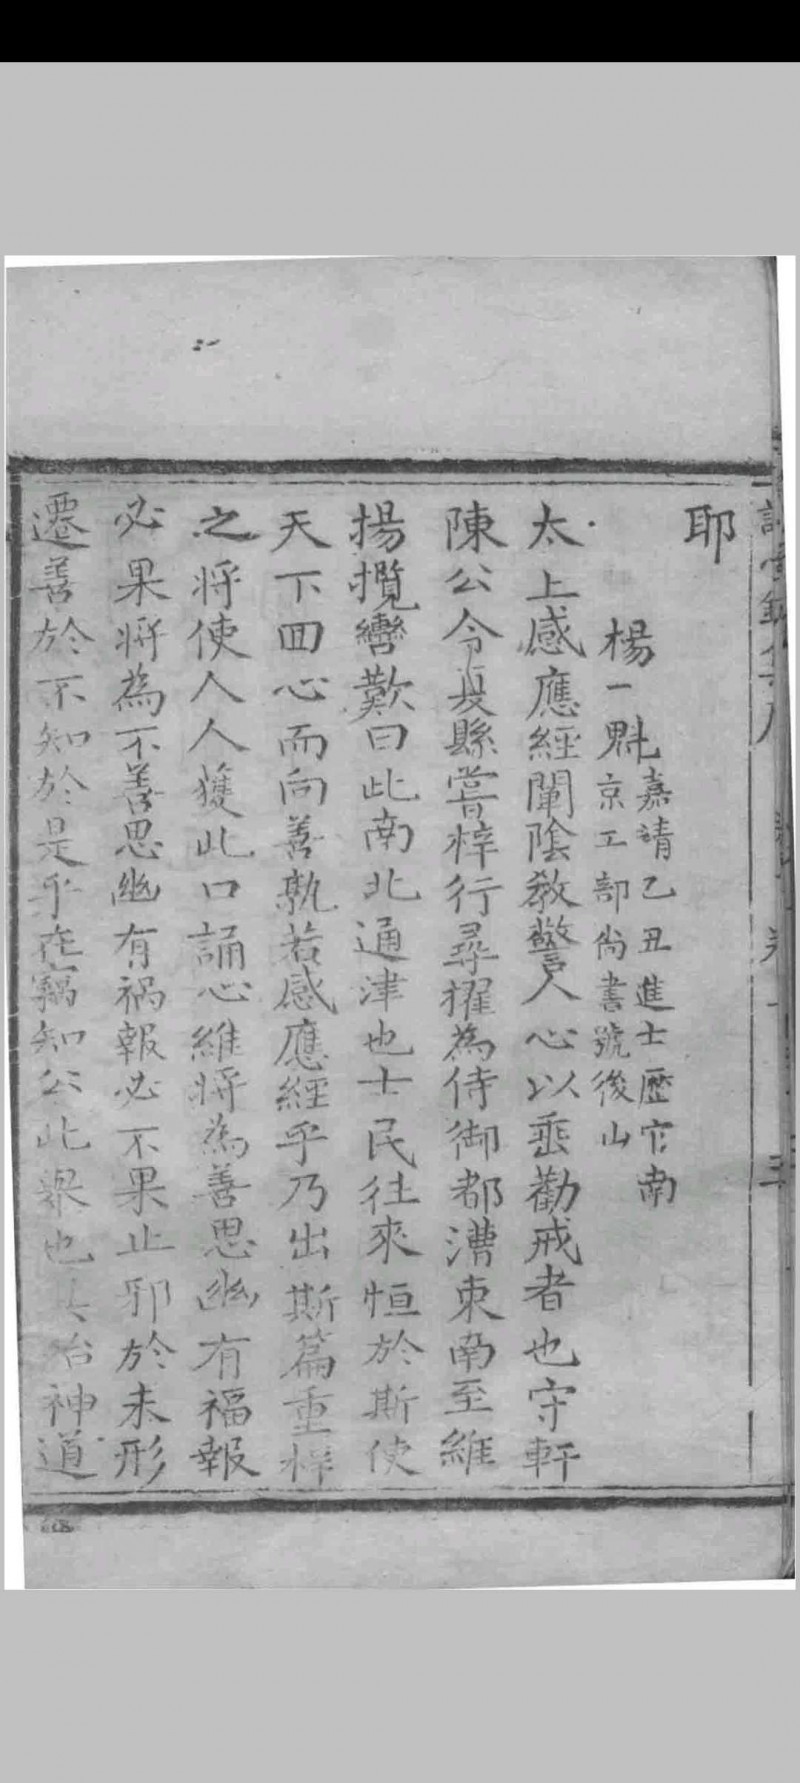 耶
楊一魁
嘉靖乙丑進士歷官南
京工部尚書號後山
太上感應經闡陰教警人心以垂勸戒者也守軒
陳公令夏縣嘗梓行尋擢為侍御都漕東南至維
揚攬轡歎曰此南北通津也士民往來恒於斯使
天下回心而向善孰若感應經乎乃出斯篇重梓
之將使人人獲此口誦心維將為善思幽有福報
必果將為不善思幽有禍報必不果止邪於未形
遷善於不知於是乎在竊知公此舉也其殆神道